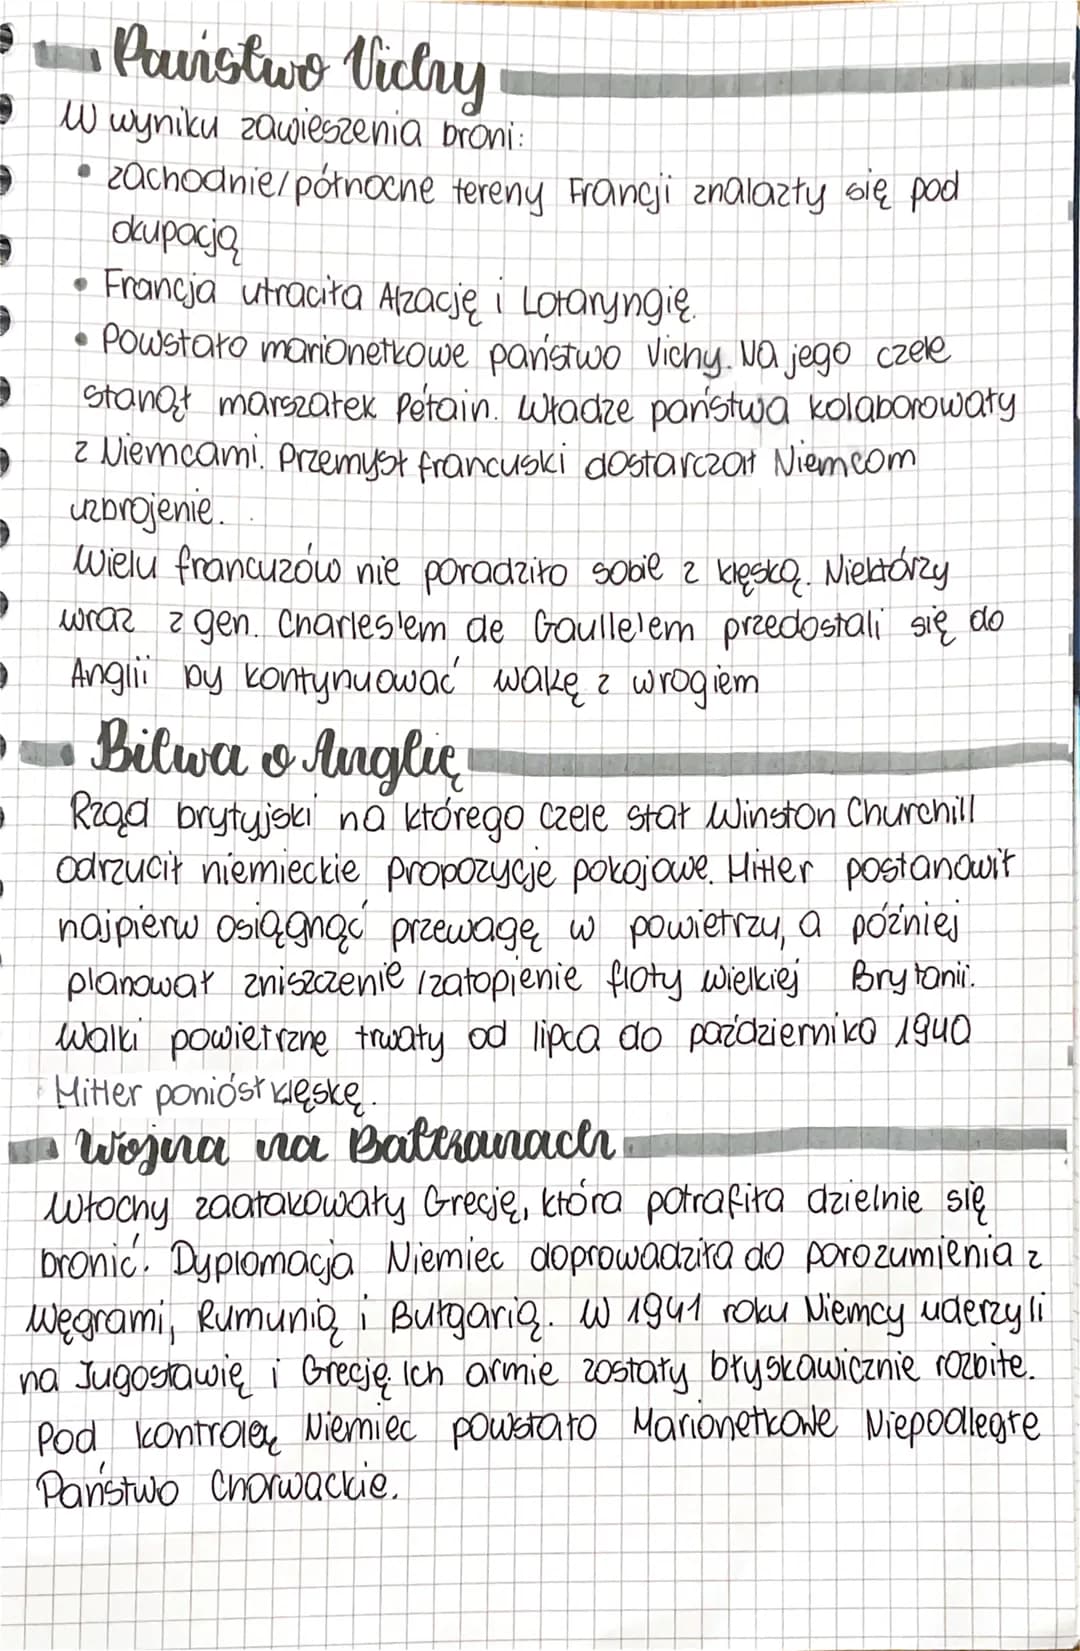 Państwo Vichy
W wyniku zawieszenia broni:
• zachodnie/północne tereny Francji znalazły się pod
okupacją
• Francja utraciła Alzację i Lotaryngię.
• Powstało marionetkowe państwo Vichy. Na jego czele
stanął marszałek Pétain. Władze państwa kolaborowały
z Niemcami. Przemysł francuski dostarczał Niemcom
uzbrojenie.
Wielu francuzów nie poradziło sobie z klęską. Niektórzy
wraz z gen. Charles'em de Gaulle'em przedostali się do
Anglii by kontynuować walkę z wrogiem
Bitwa o Anglię
Rząd brytyjski na którego czele stał Winston Churchill
odrzucił niemieckie propozycje pokojowe. Hitler postanowił
najpierw osiągnąć przewagę w powietrzu, a później
planował zniszczenie/zatopienie floty wielkiej Brytanii.
Walki powietrzne trwały od lipca do października 1940
Hitler poniósł klęskę.
Wojna na Bałkanach
Włochy zaatakowały Grecję, która potrafiła dzielnie się
bronić. Dyplomacja Niemiec doprowadziła do porozumienia z
Węgrami, Rumunią i Bułgarią. W 1941 roku Niemcy uderzyli
na Jugosławię i Grecję. Ich armie zostały błyskawicznie rozbite.
Pod kontrolą Niemiec powstało Marionetkowe Niepodległe
Państwo Chorwackie.